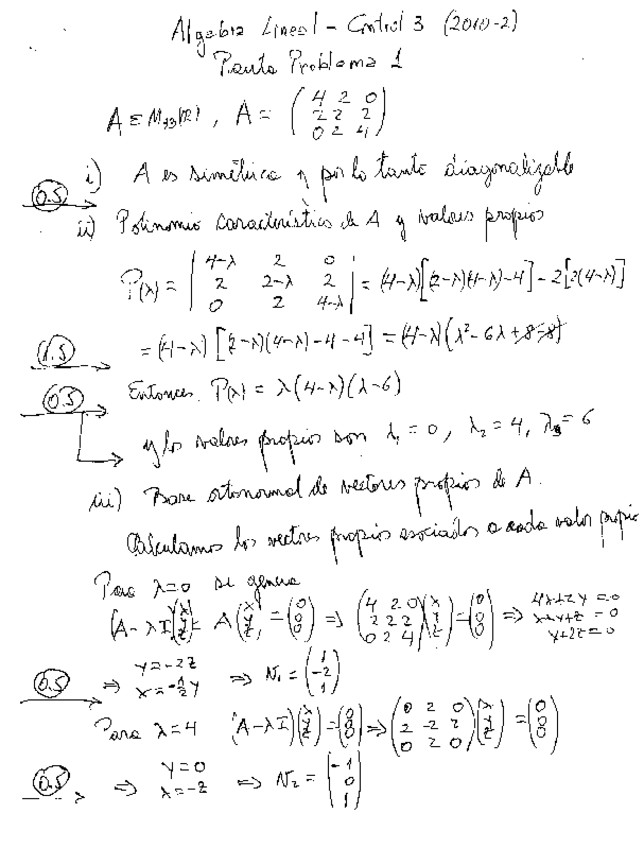 Algebra Lineal - Control 3 (2010-2)
Pauta Problema 1
A ∈ M₃₃(ℝ), A = (4 2 0; 2 2 2; 0 2 4)
0.5 i) A es simétrica y por lo tanto diagonalizable
ii) Polinomio característico de A y valores propios
P(λ) = |4-λ 2 0; 2 2-λ 2; 0 2 4-λ| = (4-λ)[(2-λ)(4-λ)-4] - 2[2(4-λ)]
1.5 = (4-λ)[(2-λ)(4-λ)-4-4] = (4-λ)(λ²-6λ+8-8)
0.5 Entonces P(λ) = λ(4-λ)(λ-6)
y los valores propios son λ₁ = 0, λ₂ = 4, λ₃ = 6
iii) Base ortonormal de vectores propios de A.
Calculamos los vectores propios asociados a cada valor propio
Para λ=0 se genera
(A-λI)(x; y; z) = A(x; y; z) = (0; 0; 0) ⇒ (4 2 0; 2 2 2; 0 2 4)(x; y; z) = (0; 0; 0) ⇒ 4x+2y=0
x+y+z=0
y+2z=0
0.5 ⇒ y=-2z
x=-½y ⇒ v₁ = (1; -2; 1)
Para λ=4 (A-λI)(x; y; z) = (0; 0; 0) ⇒ (0 2 0; 2 -2 2; 0 2 0)(x; y; z) = (0; 0; 0)
0.5 ⇒ y=0
x=-z ⇒ v₂ = (-1; 0; 1)